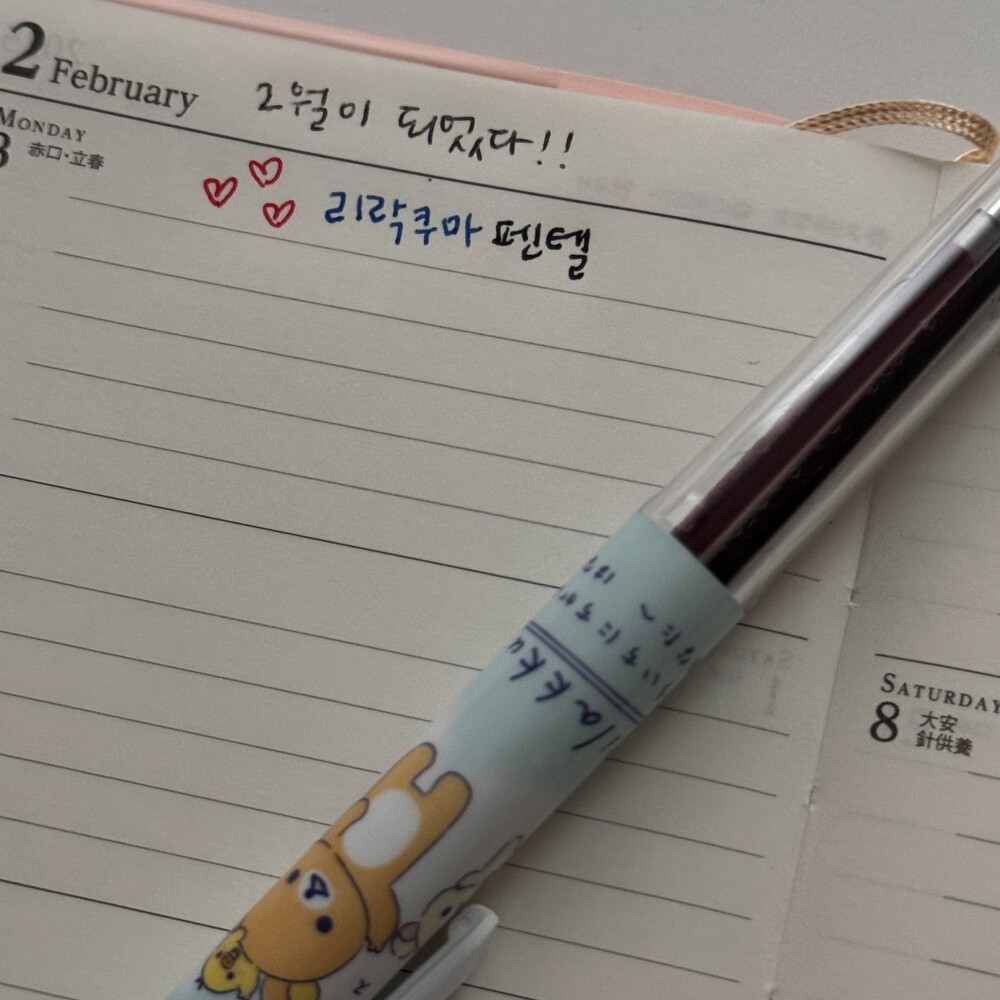 2 February 2월이 되었다!!
MONDAY
3 赤口・立春
리락쿠마 펜텔
SATURDAY
8 大安
針供養